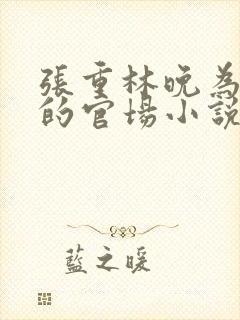 張重林晚為
的官場小說
藍之暖